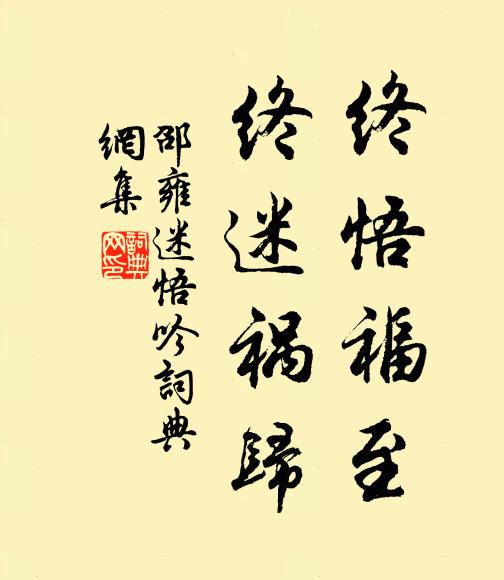 终悟福至
终迷祸歸
邵雍迷悟吟詞典
網集
詞典
网印